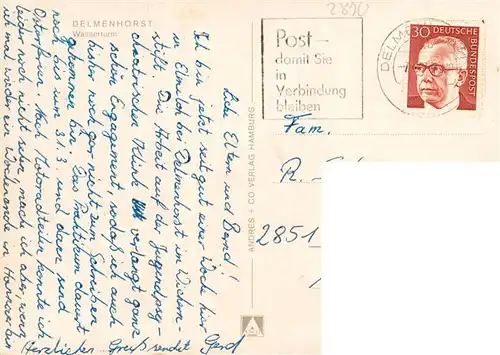 2890
DELMENHORST
Wasserturm
Liebe Eltern und Bernd!
Ich bin jetzt seit gut einer Woche hier
in Elmeloh bei Delmenhorst im Wichern-
stift. Die Arbeit auf der Jugendpsy-
chiatrischen Klinik verlangt ganz
schön Engagement, sodaß ich auch
bisher noch gar nicht zum Schreiben
gekommen bin. Das Praktikum dauert
noch bis zum 31.3. und dann sind
Osterferien. Nach Motorradteile konnte ich
bisher noch nicht sehen, mache ich aber, wenn
ich mal wieder ein Wochenende in Hannover bin
Herzlichen Gruß sendet Gerd
ANDRES + CO VERLAG HAMBURG
Post –
damit Sie
in
Verbindung
bleiben
DELM
30 DEUTSCHE
BUNDESPOST
Fam.
R.
2851